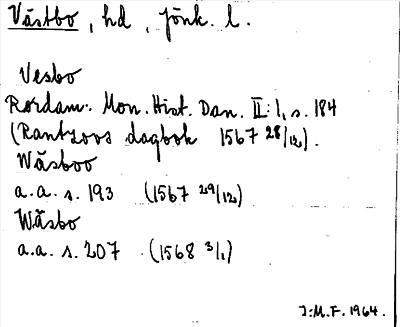 Västbo, hd, jönk. l.
Vesbo
Rørdam: Mon. Hist. Dan. II: 1, s. 184
(Rantzoos dagbok 1567 28/12).
Wäsboo
a.a. s. 193 (1567 29/12)
Wäsbo
a.a. s. 207 (1568 3/1)
I:M.F. 1964.